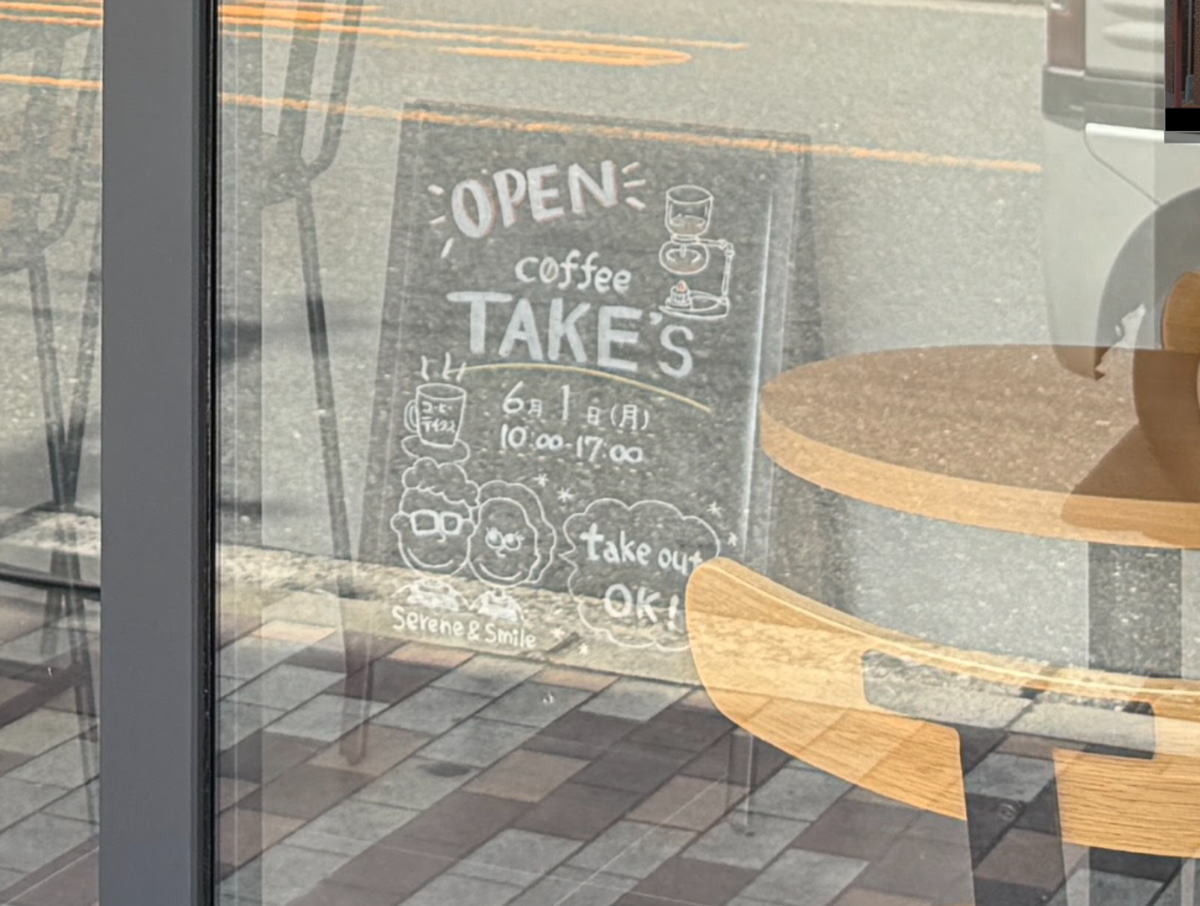 OPEN
coffee
TAKE'S
6月1日(月)
10:00-17:00
コーヒー
テイクス
take out
OK!
Serene & Smile